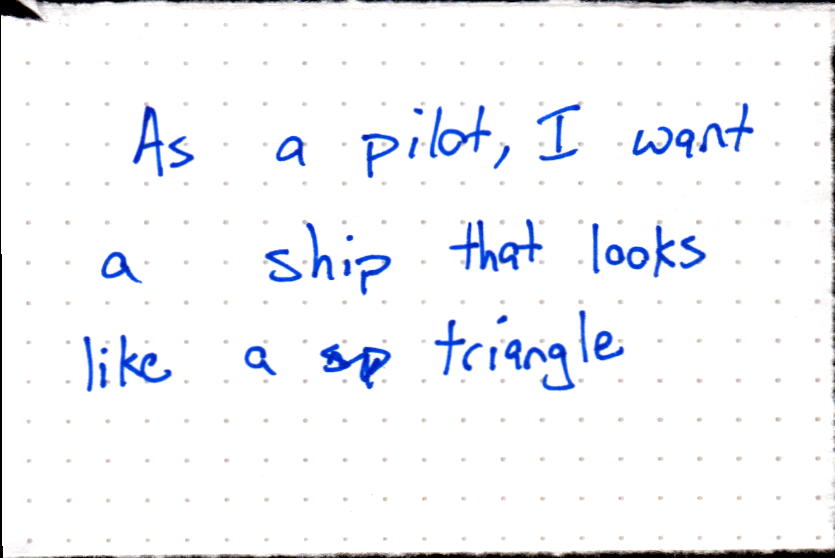 As a pilot, I want
a ship that looks
like a triangle